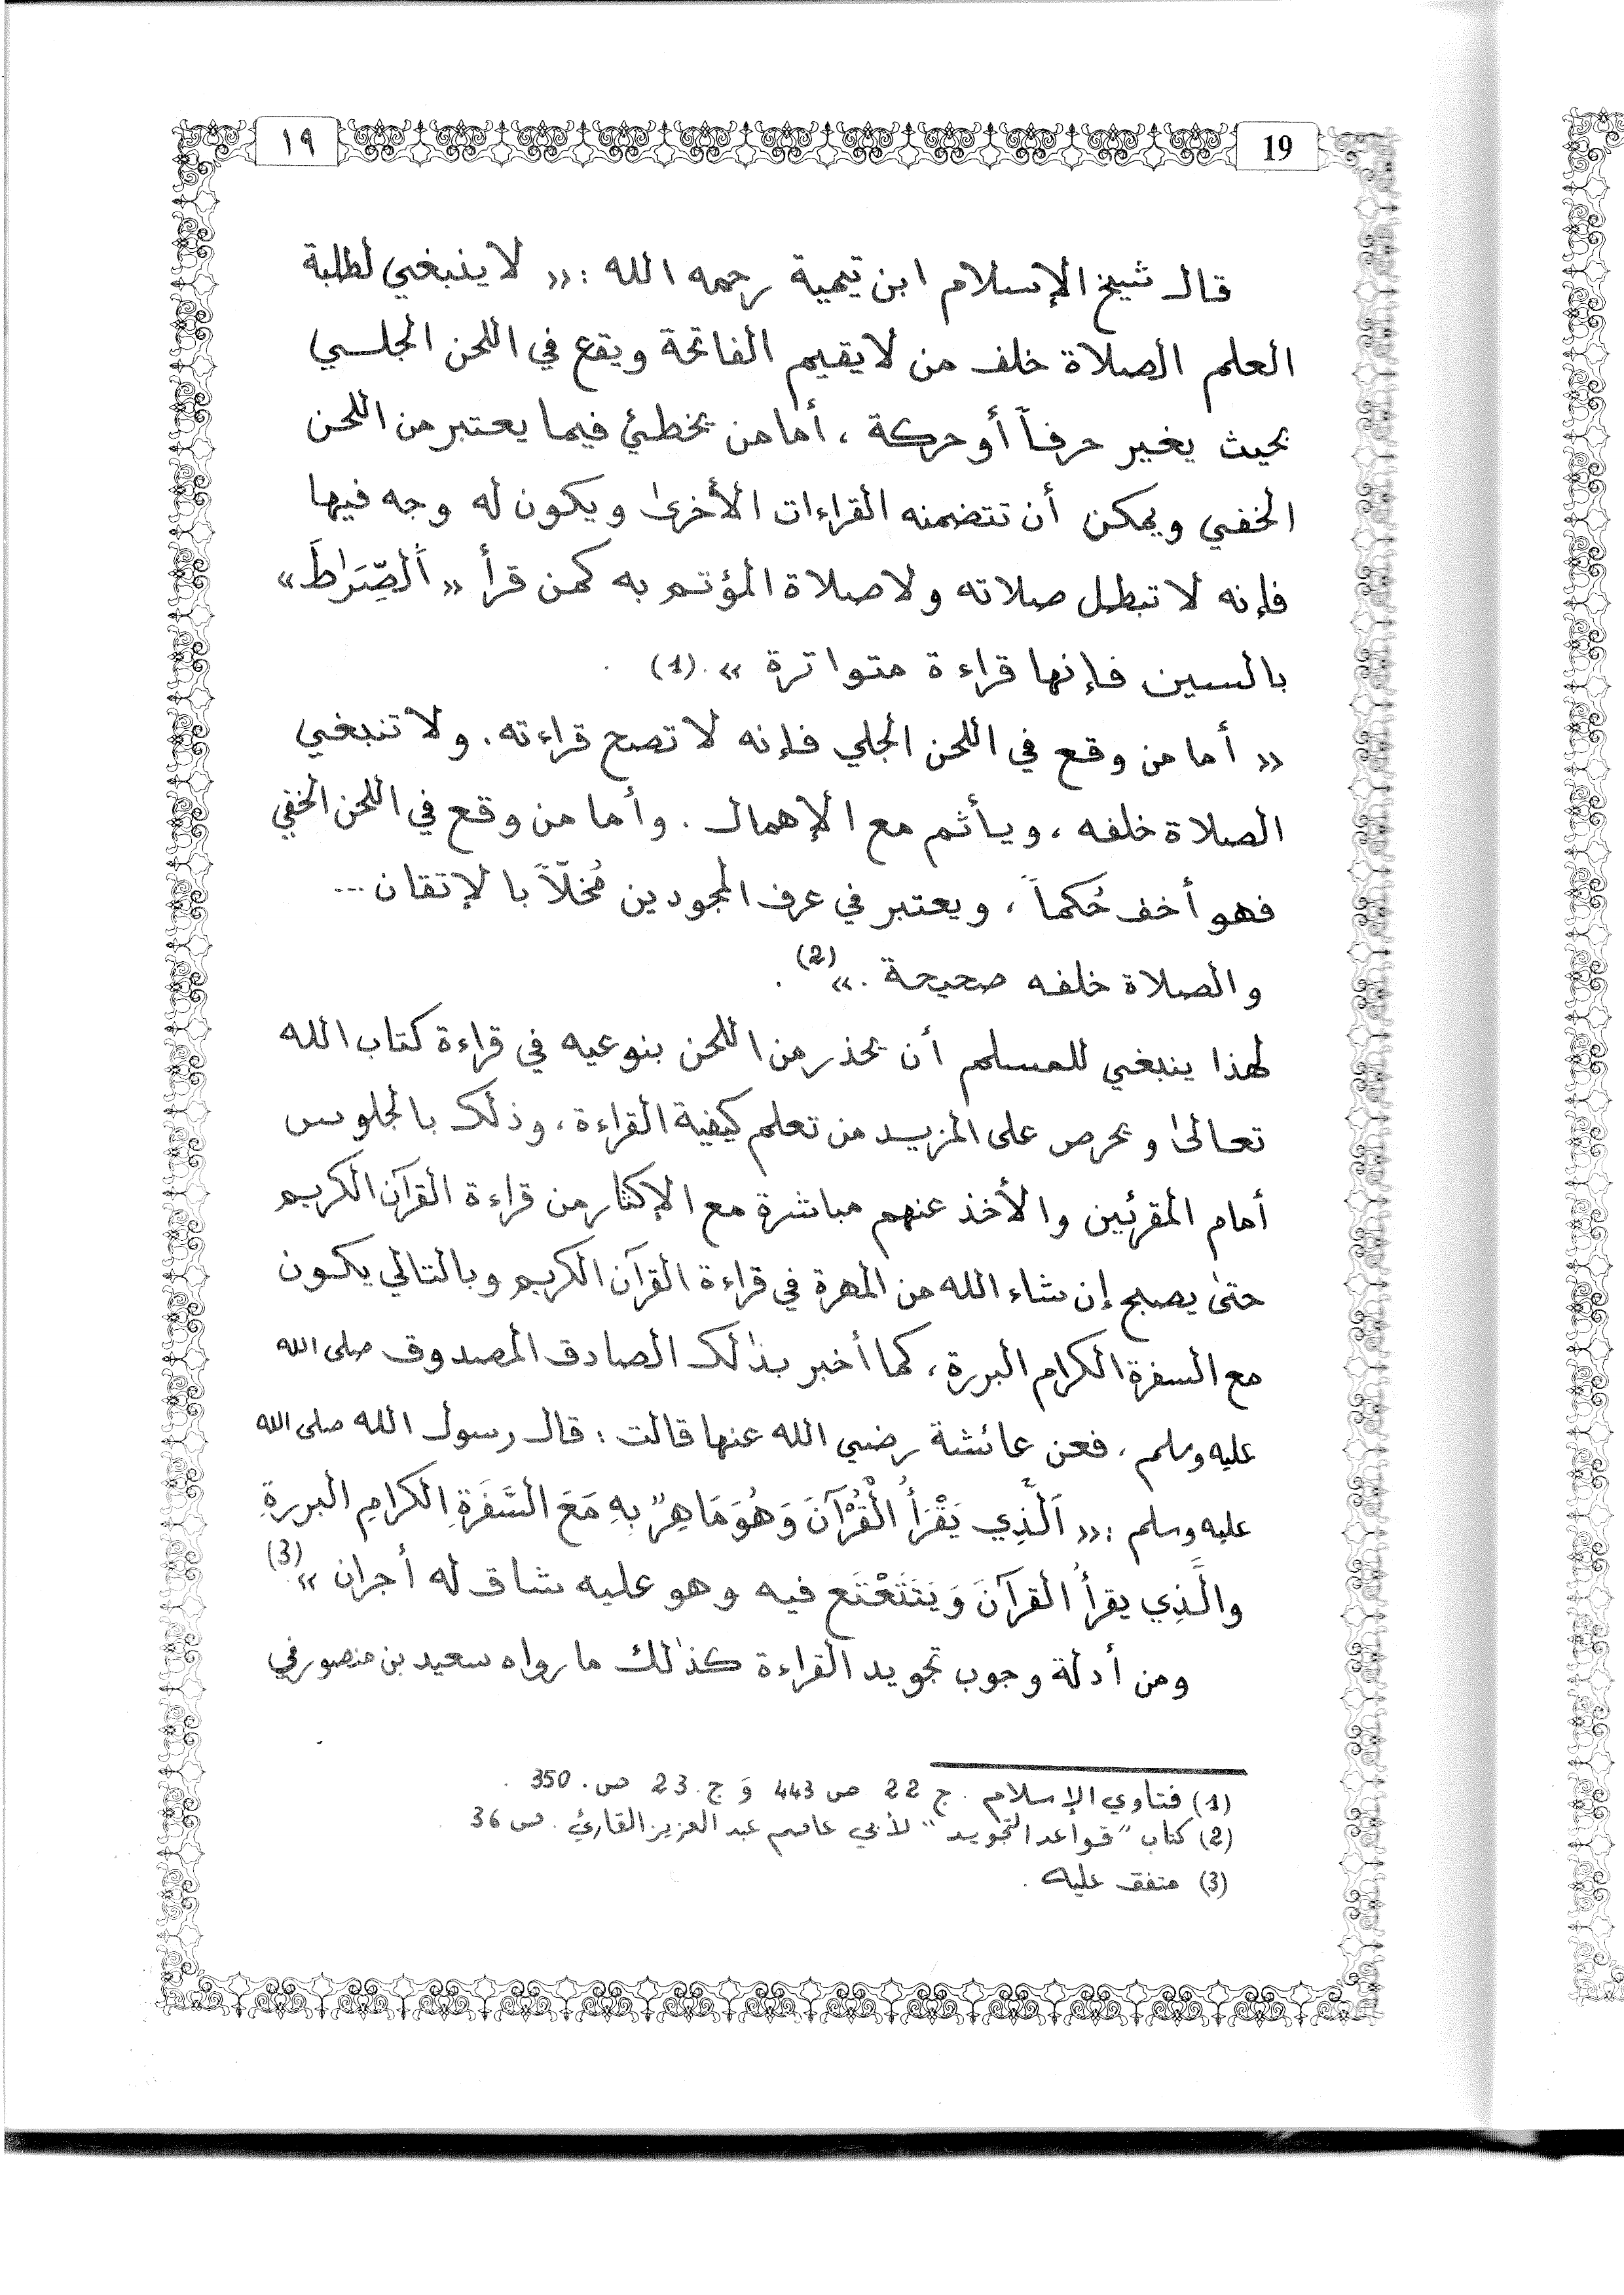 ١٩
19
قال شيخ الإسلام ابن تيمية رحمه الله : « لا ينبغي لطلبة
العلم الصلاة خلف من لا يقيم الفاتحة ويقع في اللحن الجلسي
بحيث يغير حرفاً أو حركة ، أما من يخطئ فيما يعتبر من اللحن
الخفي ويمكن أن تتضمنه القراءات الأخرى ويكون له وجه فيها
فإنه لا تبطل صلاته ولا صلاة المؤتم به كمن قرأ « اَلصِّرَاطَ »
بالسين فإنها قراءة متواترة ». (1) .
« أما من وقع في اللحن الجلي فإنه لا تصح قراءته . ولا تنبغي
الصلاة خلفه ، ويأثم مع الإهمال . وأما من وقع في اللحن الخفي
فهو أخف حُكماً ، ويعتبر في عرف المجودين مُخلّاً بالإتقان ...
والصلاة خلفه صحيحة . » (2) .
لهذا ينبغي للمسلم أن يحذر من اللحن بنوعيه في قراءة كتاب الله
تعالىٰ و يحرص على المزيد من تعلم كيفية القراءة ، وذلك بالجلوس
أمام المقرئين والأخذ عنهم مباشرة مع الإكثار من قراءة القرآن الكريم
حتىٰ يصبح إن شاء الله من المهرة في قراءة القرآن الكريم وبالتالي يكون
مع السفرة الكرام البررة ، كما أخبر بذٰلك الصادق المصدوق صلى الله
عليه وسلم ، فعن عائشة رضي الله عنها قالت : قال رسول الله صلى الله
عليه وسلم : « اَلَّذِي يَقْرَأُ الْقُرْآنَ وَهُوَ مَاهِرٌ بِهِ مَعَ السَّفَرَةِ الكرامِ البررةِ
والَّذِي يقرأُ القرآنَ وَيَتَتَعْتَع فيه وهو عليه شاق له أجران » (3)
ومن أدلة وجوب تجويد القراءة كذٰلك ما رواه سعيد بن منصور في
(1) فتاوي الإسلام . ج 22 ص 443 وَ ج. 23 ص. 350 .
(2) كتاب "قواعد التجويد" لأبي عاصم عبد العزيز القارئ . ص 36 .
(3) متفق عليه .